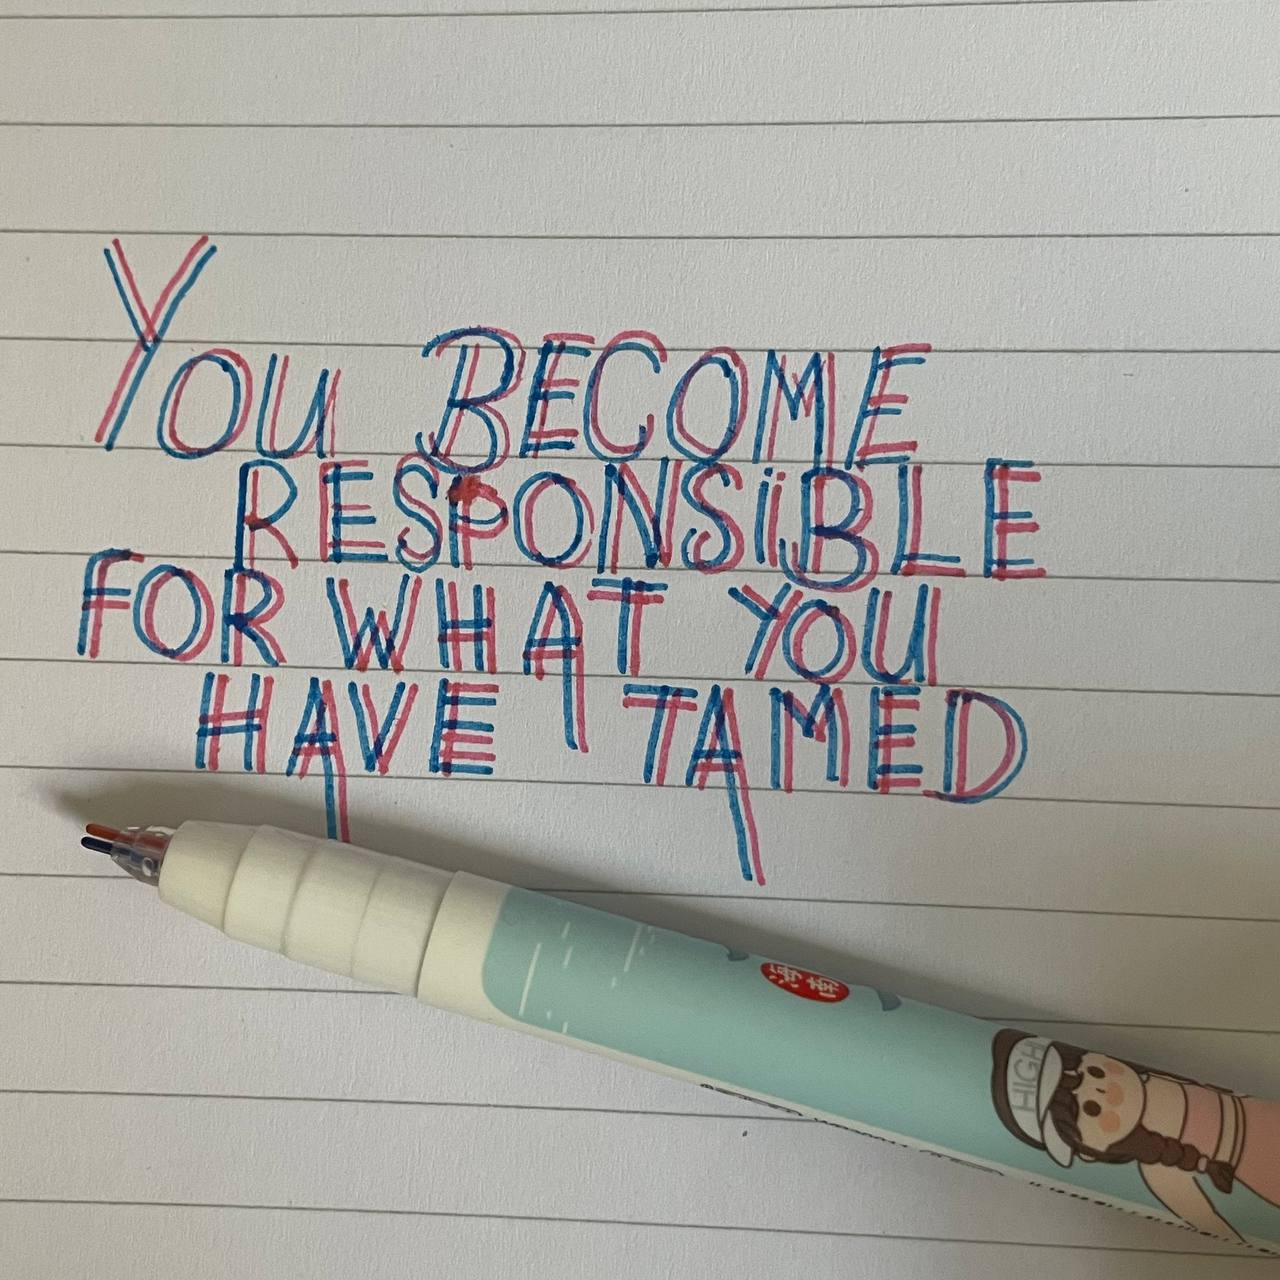 YOU BECOME
RESPONSiBLE
FOR WHAT YOU
HAVE TAMED
海南
HIGH